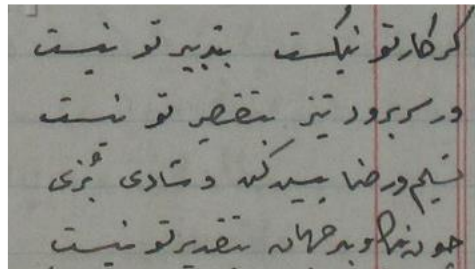 گر کار تو نیکست بتدبیر تو نیست
ور سربرود نیز بتقصیر تو نیست
تسلیم و رضا پیشه کن و شادی بزی
چون نیک و بد جهان بتقدیر تو نیست